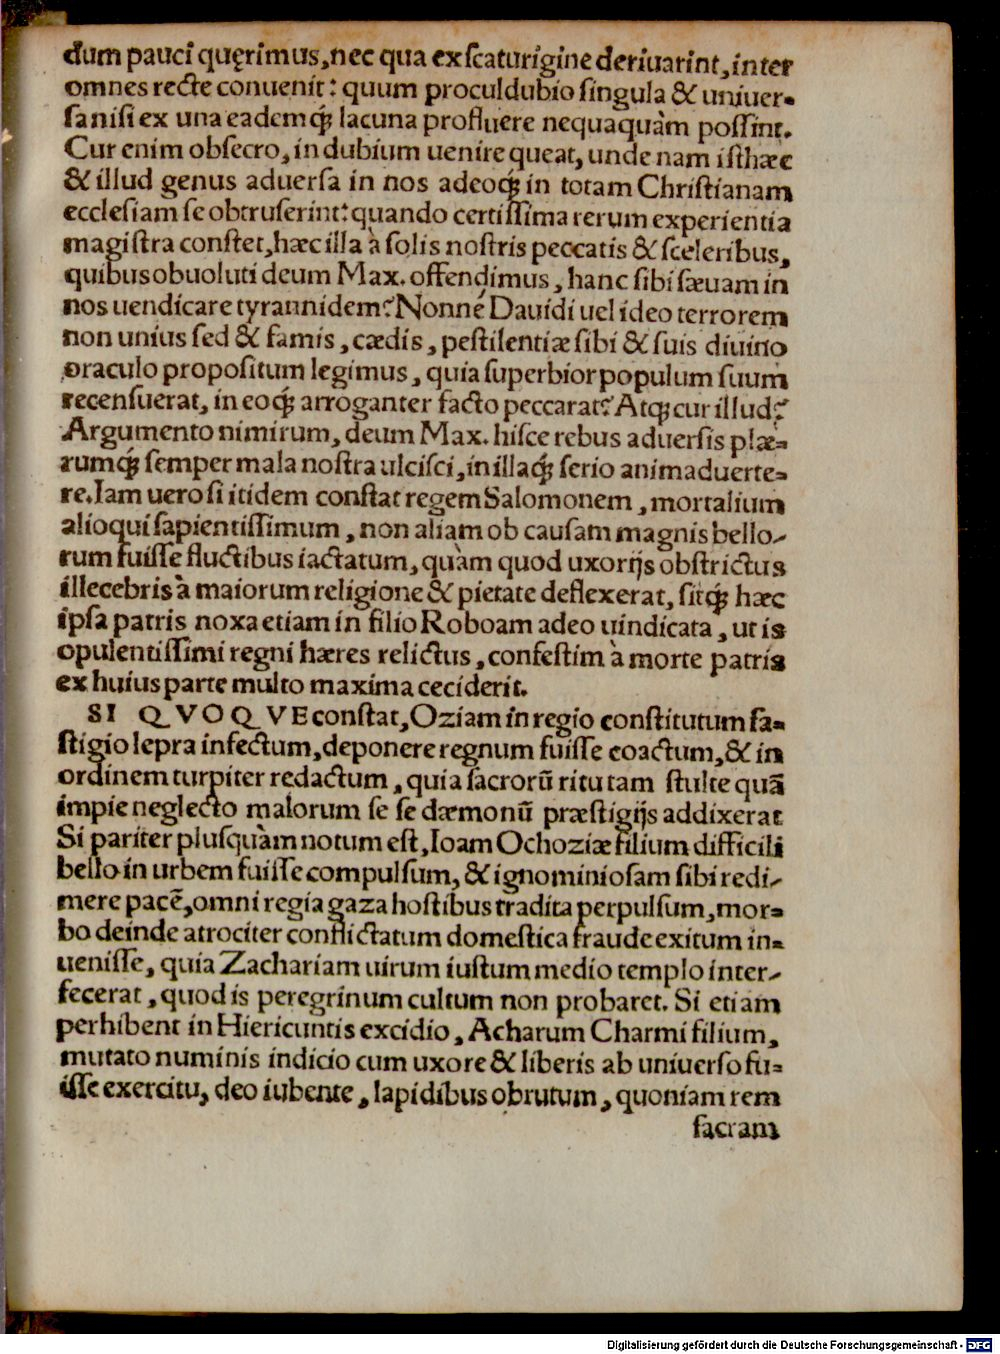 dum pauci quęrimus, nec qua ex scaturigine deriuarint, inter
omnes recte conuenit: quum proculdubio singula & uniuer-
sa nisi ex una eademq́; lacuna profluere nequaquàm possint.
Cur enim obsecro, in dubium uenire queat, unde nam isthæc
& illud genus aduersa in nos adeoq́; in totam Christianam
ecclesiam se obtruserint: quando certissima rerum experientia
magistra constet, hæc illa à solis nostris peccatis & sceleribus,
quibus obuoluti deum Max. offendimus, hanc sibi sæuam in
nos uendicare tyrannidem? Nonné Dauidi uel ideo terrorem
non unius sed & famis, cædis, pestilentiæ sibi & suis diuino
oraculo propositum legimus, quia superbior populum suum
recensuerat, in eoq́; arroganter facto peccarat? Atq; cur illud?
Argumento nimirum, deum Max. hisce rebus aduersis plæ-
rumq́; semper mala nostra ulcisci, in illaq́; serio animaduerte-
re. Iam uero si itidem constat regem Salomonem, mortalium
alioqui sapientissimum, non aliam ob causam magnis bello-
rum fuisse fluctibus iactatum, quàm quod uxorijs obstrictus
illecebris à maiorum religione & pietate deflexerat, sitq́; hæc
ipsa patris noxa etiam in filio Roboam adeo uindicata, ut is
opulentissimi regni hæres relictus, confestim à morte patris
ex huius parte multo maxima ceciderit.
SI QVOQVE constat, Oziam in regio constitutum fa-
stigio lepra infectum, deponere regnum fuisse coactum, & in
ordinem turpiter redactum, quia sacrorũ ritu tam stulte quã
impie neglecto malorum se se dæmonũ præstigijs addixerat
Si pariter plusquàm notum est, Ioam Ochoziæ filium difficili
bello in urbem fuisse compulsum, & ignominiosam sibi redi-
mere pacẽ, omni regia gaza hostibus tradita perpulsum, mor-
bo deinde atrociter conflictatum domestica fraude exitum in-
uenisse, quia Zachariam uirum iustum medio templo inter-
fecerat, quod is peregrinum cultum non probaret. Si etiam
perhibent in Hiericuntis excidio, Acharum Charmi filium,
mutato numinis indicio cum uxore & liberis ab uniuerso fu-
isse exercitu, deo iubente, lapidibus obrutum, quoniam rem
sacram
Digitalisierung gefördert durch die Deutsche Forschungsgemeinschaft - DFG